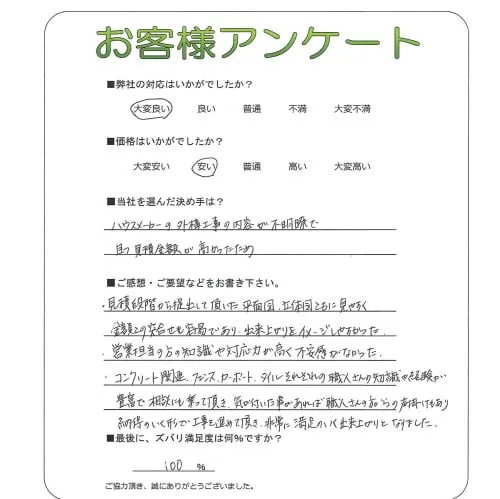 お客様アンケート
■弊社の対応はいかがでしたか?
大変良い 良い 普通 不満 大変不満
■価格はいかがでしたか?
大変安い 安い 普通 高い 大変高い
■当社を選んだ決め手は?
ハウスメーカーの外構工事の内容が不明瞭で
且つ見積金額が高かったため
■ご感想・ご要望などをお書き下さい。
・見積段階から提出して頂いた平面図、立体図ともに見やすく
金額との突合せも容易であり、出来上がりをイメージしやすかった。
・営業担当の方の知識や対応力が高く不安感がなかった。
・コンクリート関連、フェンス、カーポート、タイルそれぞれの職人さんの知識や経験が
豊富で相談にも乗って頂き、気が付いた事があれば職人さんの方からの声掛けもあり
納得のいく形で工事を進めて頂き、非常に満足のいく出来上がりとなりました。
■最後に、ズバリ満足度は何%ですか?
100 %
ご協力頂き、誠にありがとうございました。